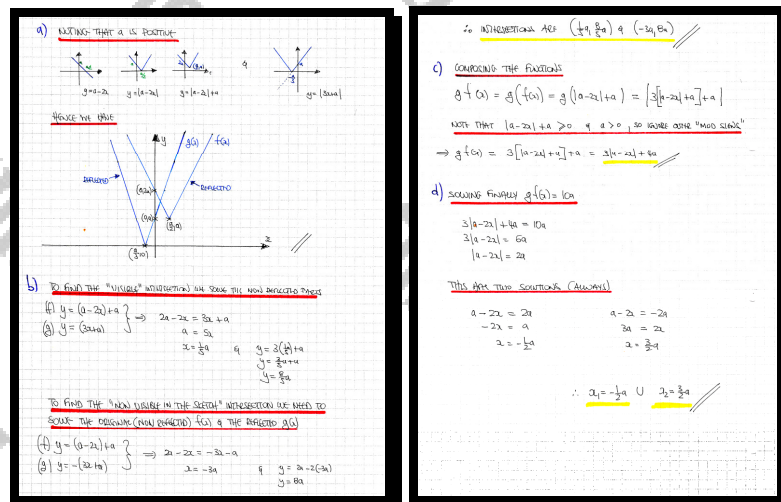 a) NOTING THAT a IS POSITIVE
y=a-2x y=|a-2x| y=|a-2x|+a & y=|3x+a|
HENCE WE HAVE
y g(x) f(x)
REFLECTED REFLECTED
(0,2a)
(0,a)
x
b) TO FIND THE "VISIBLE" INTERSECTION WE SOLVE THE NON REFLECTED PARTS
(f) y=(a-2x)+a
(g) y=(3x+a)
⇒ 2a-2x = 3x+a
a = 5x
x = 1/5 a & y = 3(1/5 a)+a
y = 3/5 a + a
y = 8/5 a
TO FIND THE "NON VISIBLE IN THE SKETCH" INTERSECTION WE NEED TO
SOLVE THE ORIGINAL (NON REFLECTED) f(x) & THE REFLECTED g(x)
(f) y=(a-2x)+a
(g) y=-(3x+a)
⇒ 2a-2x = -3x-a
x = -3a & y = 2a-2(-3a)
y = 8a
∴ INTERSECTIONS ARE (1/5 a, 8/5 a) & (-3a, 8a)
c) COMPOSING THE FUNCTIONS
gf(x) = g(f(x)) = g(|a-2x|+a) = |3[|a-2x|+a]+a|
NOTE THAT |a-2x|+a ≥0 & a>0, SO IGNORE OUTER "MOD SIGNS"
⇒ gf(x) = 3[|a-2x|+a]+a = 3|a-2x|+4a
d) SOLVING FINALLY gf(x)=10a
3|a-2x|+4a = 10a
3|a-2x| = 6a
|a-2x| = 2a
THIS ARE TWO SOLUTIONS (ALWAYS)
a-2x = 2a a-2x = -2a
-2x = a 3a = 2x
x = -1/2 a x = 3/2 a
∴ x₁ = -1/2 a ∪ x₂ = 3/2 a